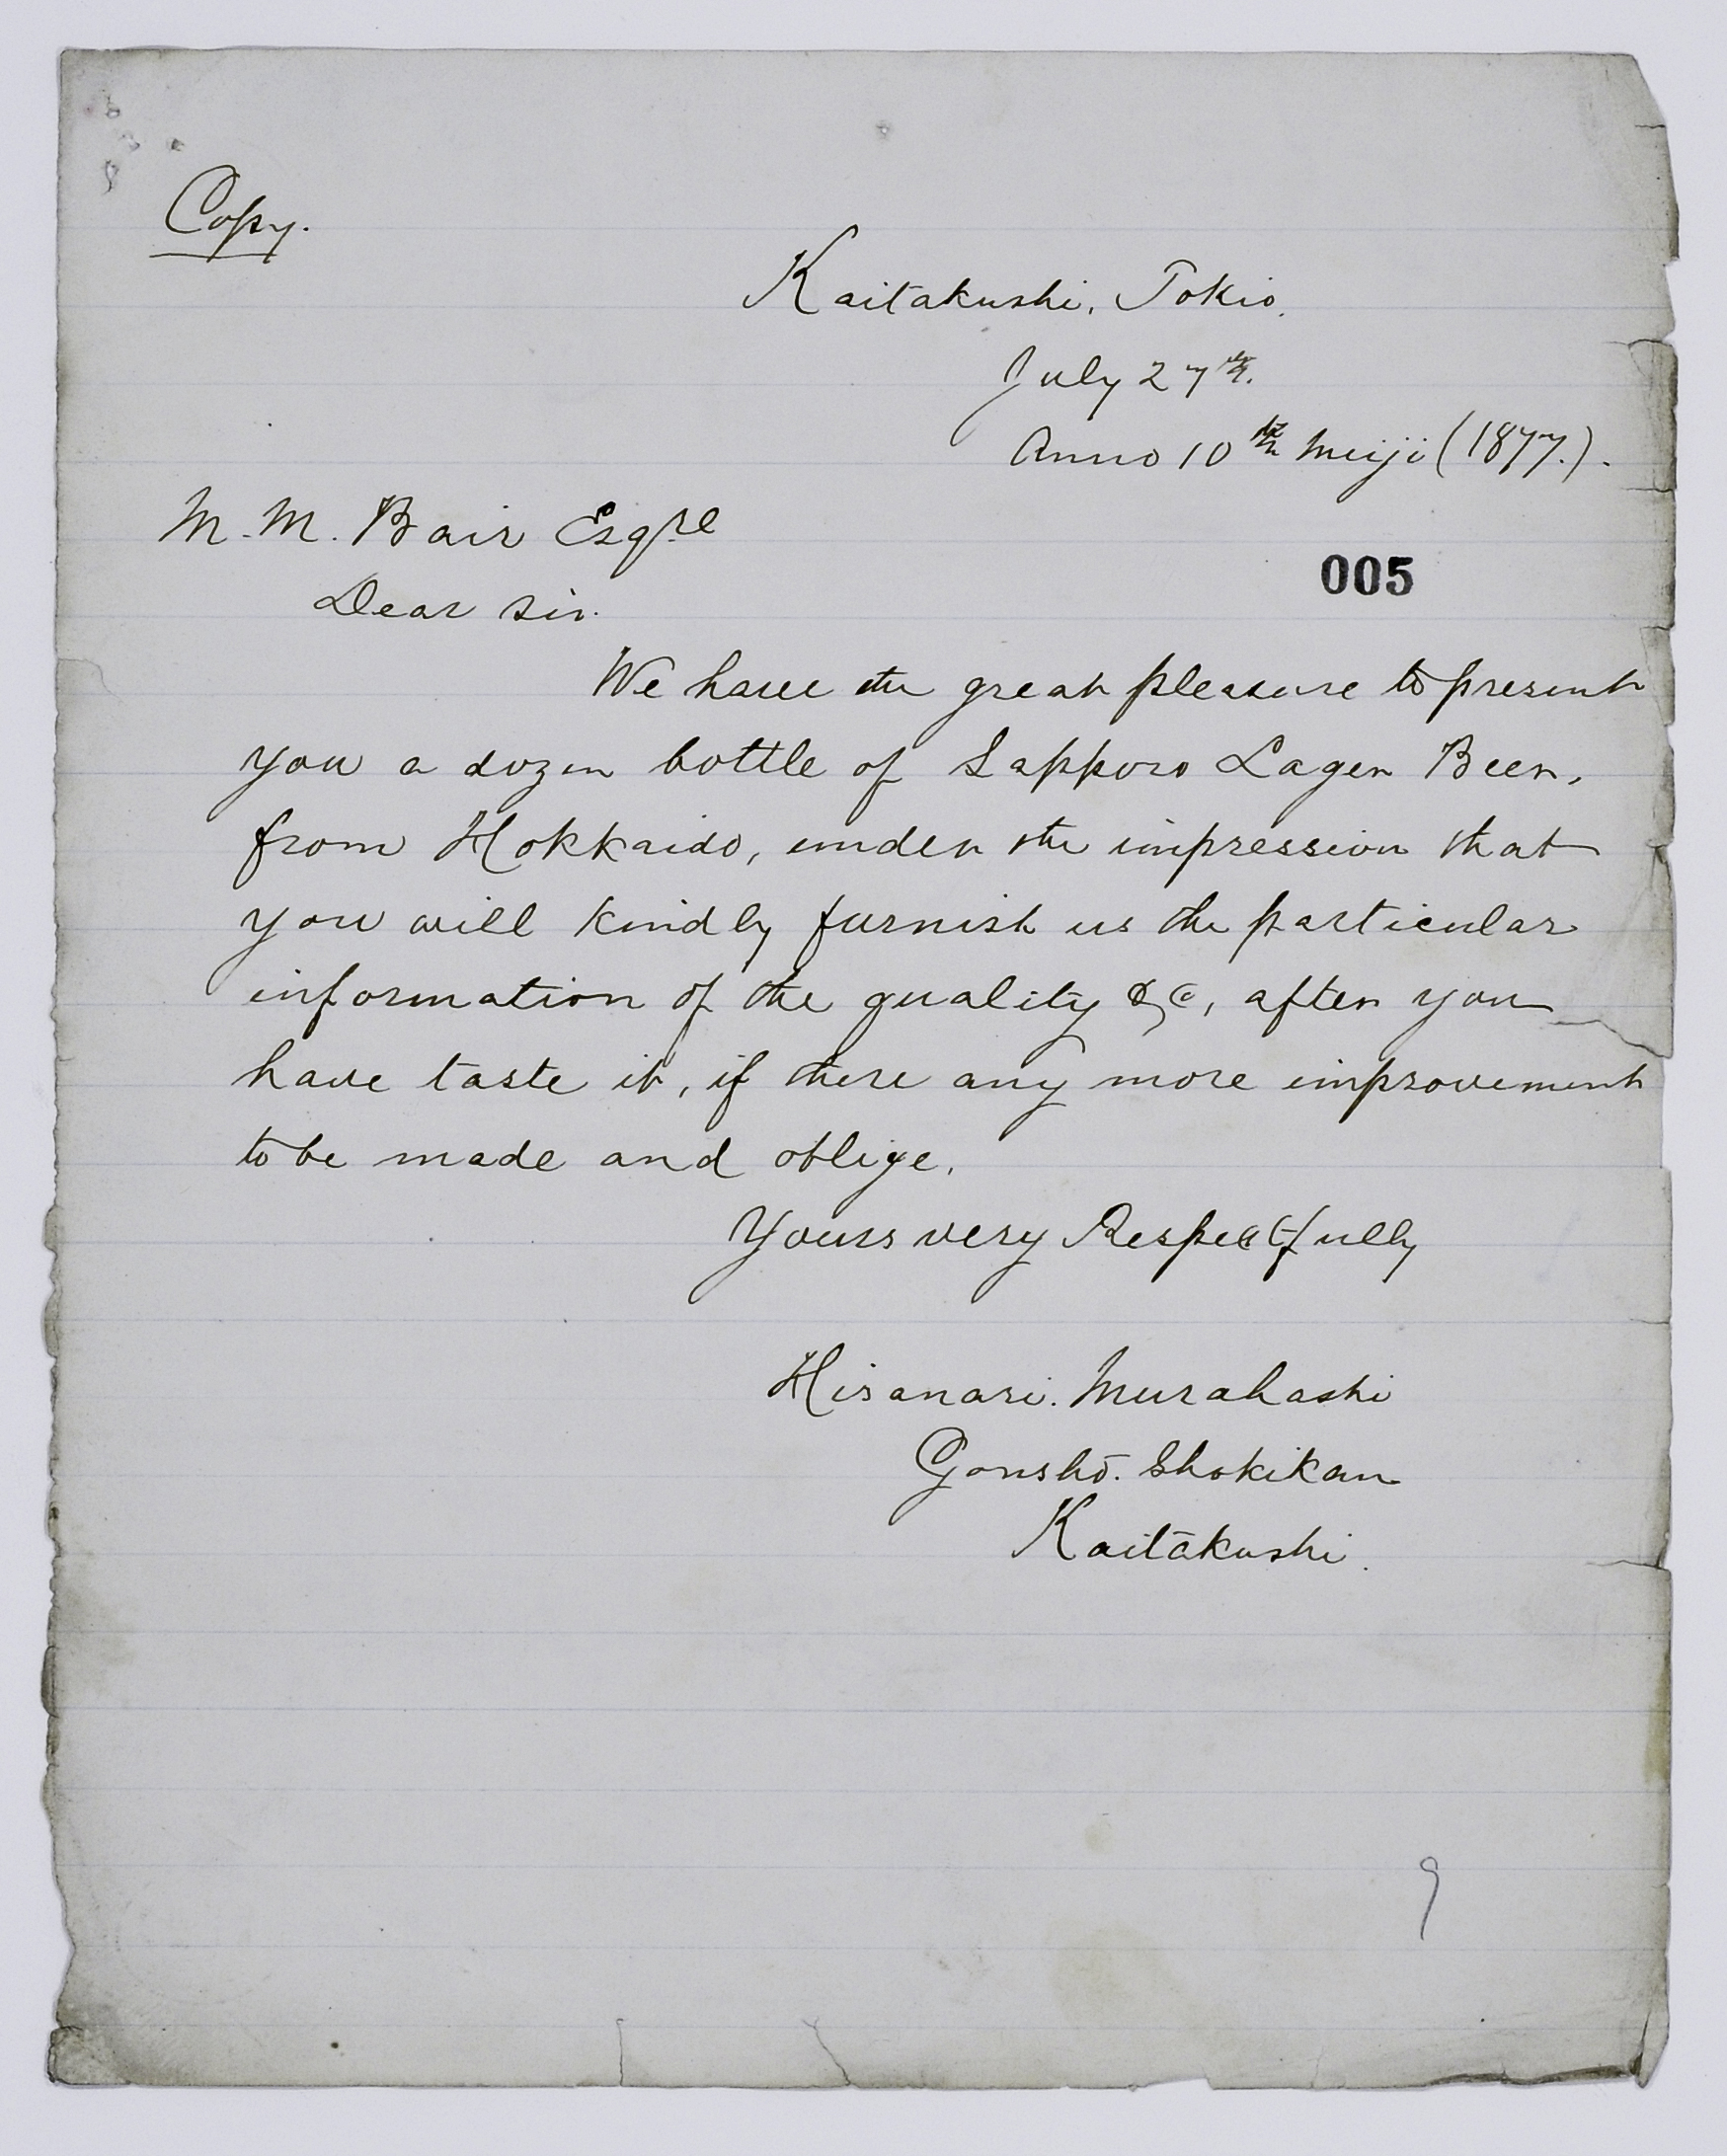 Copy.
Kaitakushi, Tokio.
July 27th.
Anno 10th Meiji (1877.).
M. M. Bair Esqre
005
Dear Sir.
We have the great pleasure to present
you a dozen bottle of Sapporo Lager Beer,
from Hokkaido, under the impression that
you will kindly furnish us the particular
information of the quality &c, after you
have taste it, if there any more improvement
to be made and oblige.
Yours very Respectfully
Hisanari. Murahashi
Gonshō. Shokikan
Kaitakushi.
9